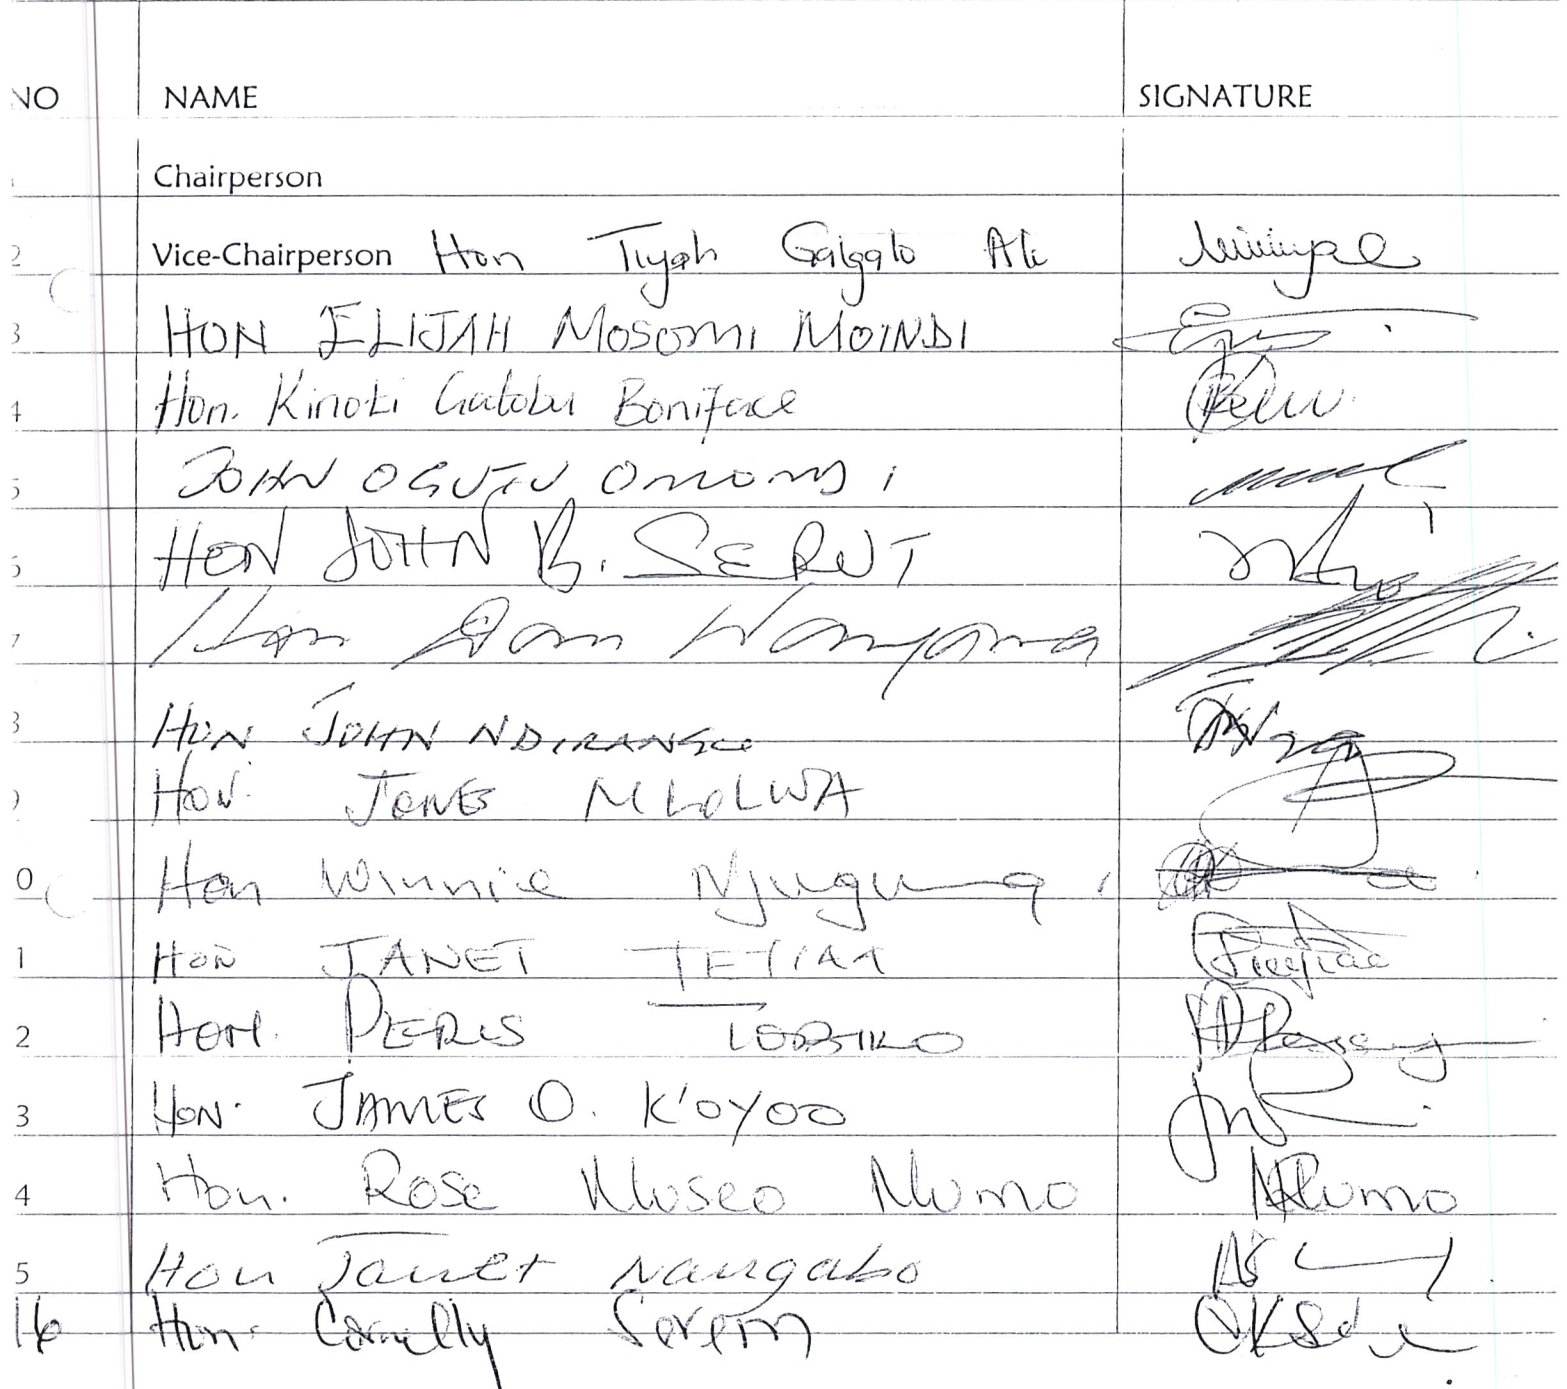 NO NAME SIGNATURE
Chairperson
2 Vice-Chairperson Hon Tiyah Galgalo Ali
3 HON ELIJAH MOSOMI MOINDI
4 Hon. Kinoti Gatobu Boniface
5 JOHN OGUTU OMONDI
HON JOHN B. SERUT
7 Hon Dan Wanyama
3 HON JOHN NDIRANGU
HON. JONES MLOLWA
0 Hon Winnie Njuguna
1 HON JANET TETIAA
2 HON. PERIS TOBIKO
3 HON. JAMES O. K'OYOO
4 Hon. Rose Museo Mumo Mumo
5 Hon Janet Nangabo
16 Hon. Cornelly Serem